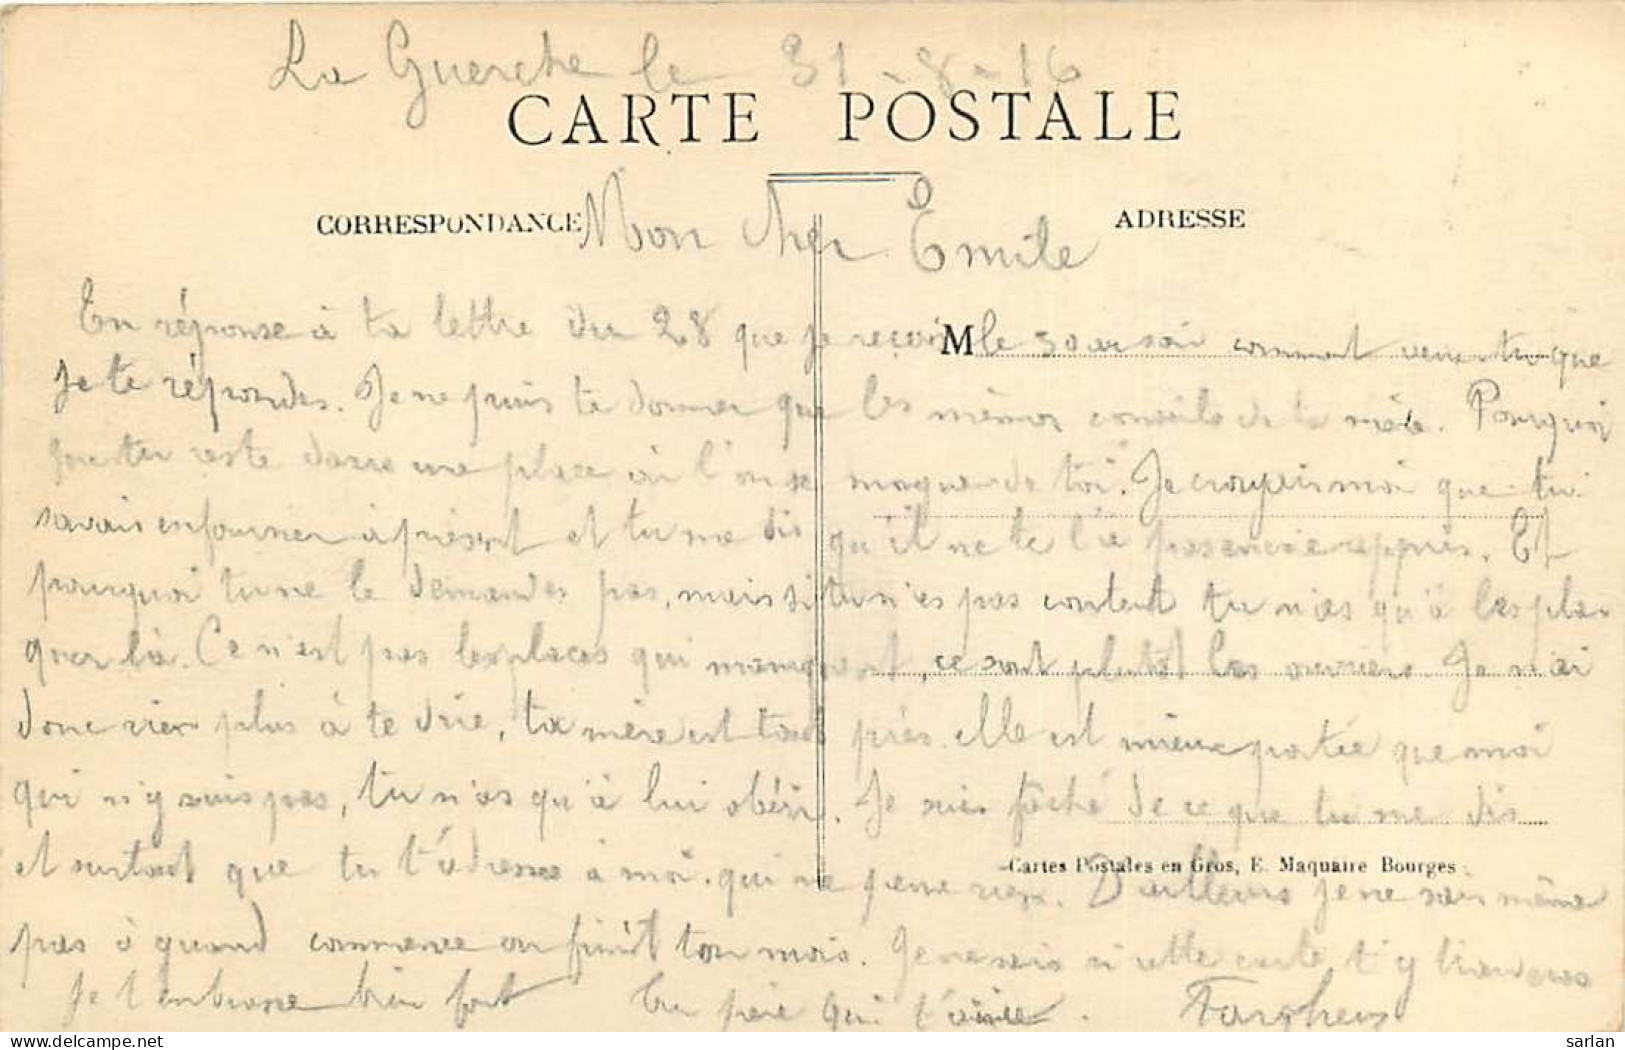 La Guerche le 31-8-16
CARTE POSTALE
CORRESPONDANCE
ADRESSE
Mon cher Emile
En réponse à ta lettre du 28 que je reçois le 30 au soir comment veux-tu que
M
je te répondes. Je ne puis te donner que les mêmes conseils de ta mère. Pourquoi
que tu reste dans une place où l'on se moque de toi. Je croyais moi que tu
savais enfourner à présent et tu me dis qu'il ne te l'a pas encore appris. Et
pourquoi tu ne le demandes pas, mais si tu n'es pas content tu n'as qu'à les pla-
quer là. Ce n'est pas les places qui manquent, ce sont plutôt les ouvriers. Je n'ai
donc rien plus à te dire, ta mère est tout près. elle est mieux portée que moi
qui n'y suis pas, tu n'as qu'à lui obéir. Je suis fâché de ce que tu me dis
et surtout que tu t'adresses à moi. qui ne peux rien. D'ailleurs je ne sais même
-Cartes Postales en Gros, E. Maquaire Bourges
pas à quand commence ou finit ton mois. Je ne sais si cette carte t'y trouveras
Je t'embrasse bien fort Ton père qui t'aime.
sarlan
delcampe.net